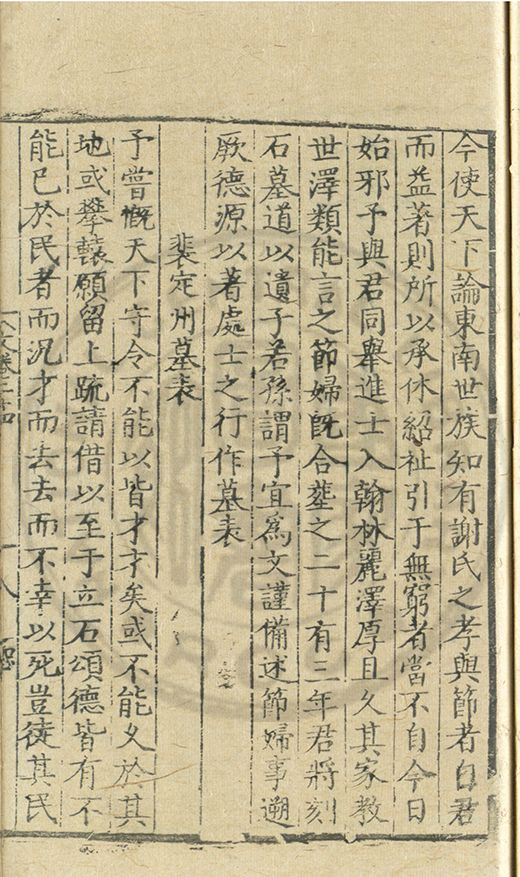 今使天下論東南世族知有謝氏之孝與節者自君
而益著則所以承休紹祉引于無窮者當不自今日
始邪予與君同舉進士入翰林麗澤厚且久其家教
世澤類能言之節婦既合塟之二十有三年君將刻
石墓道以遺子若孫謂予宜為文謹備述節婦事遡
厥德源以著處士之行作墓表
裴定州墓表
予嘗慨天下守令不能以皆才才矣或不能久於其
地或攀轅願留上䟽請借以至于立石頌德皆有不
能已於民者而況才而去去而不幸以死豈徒其民
文卷二十四